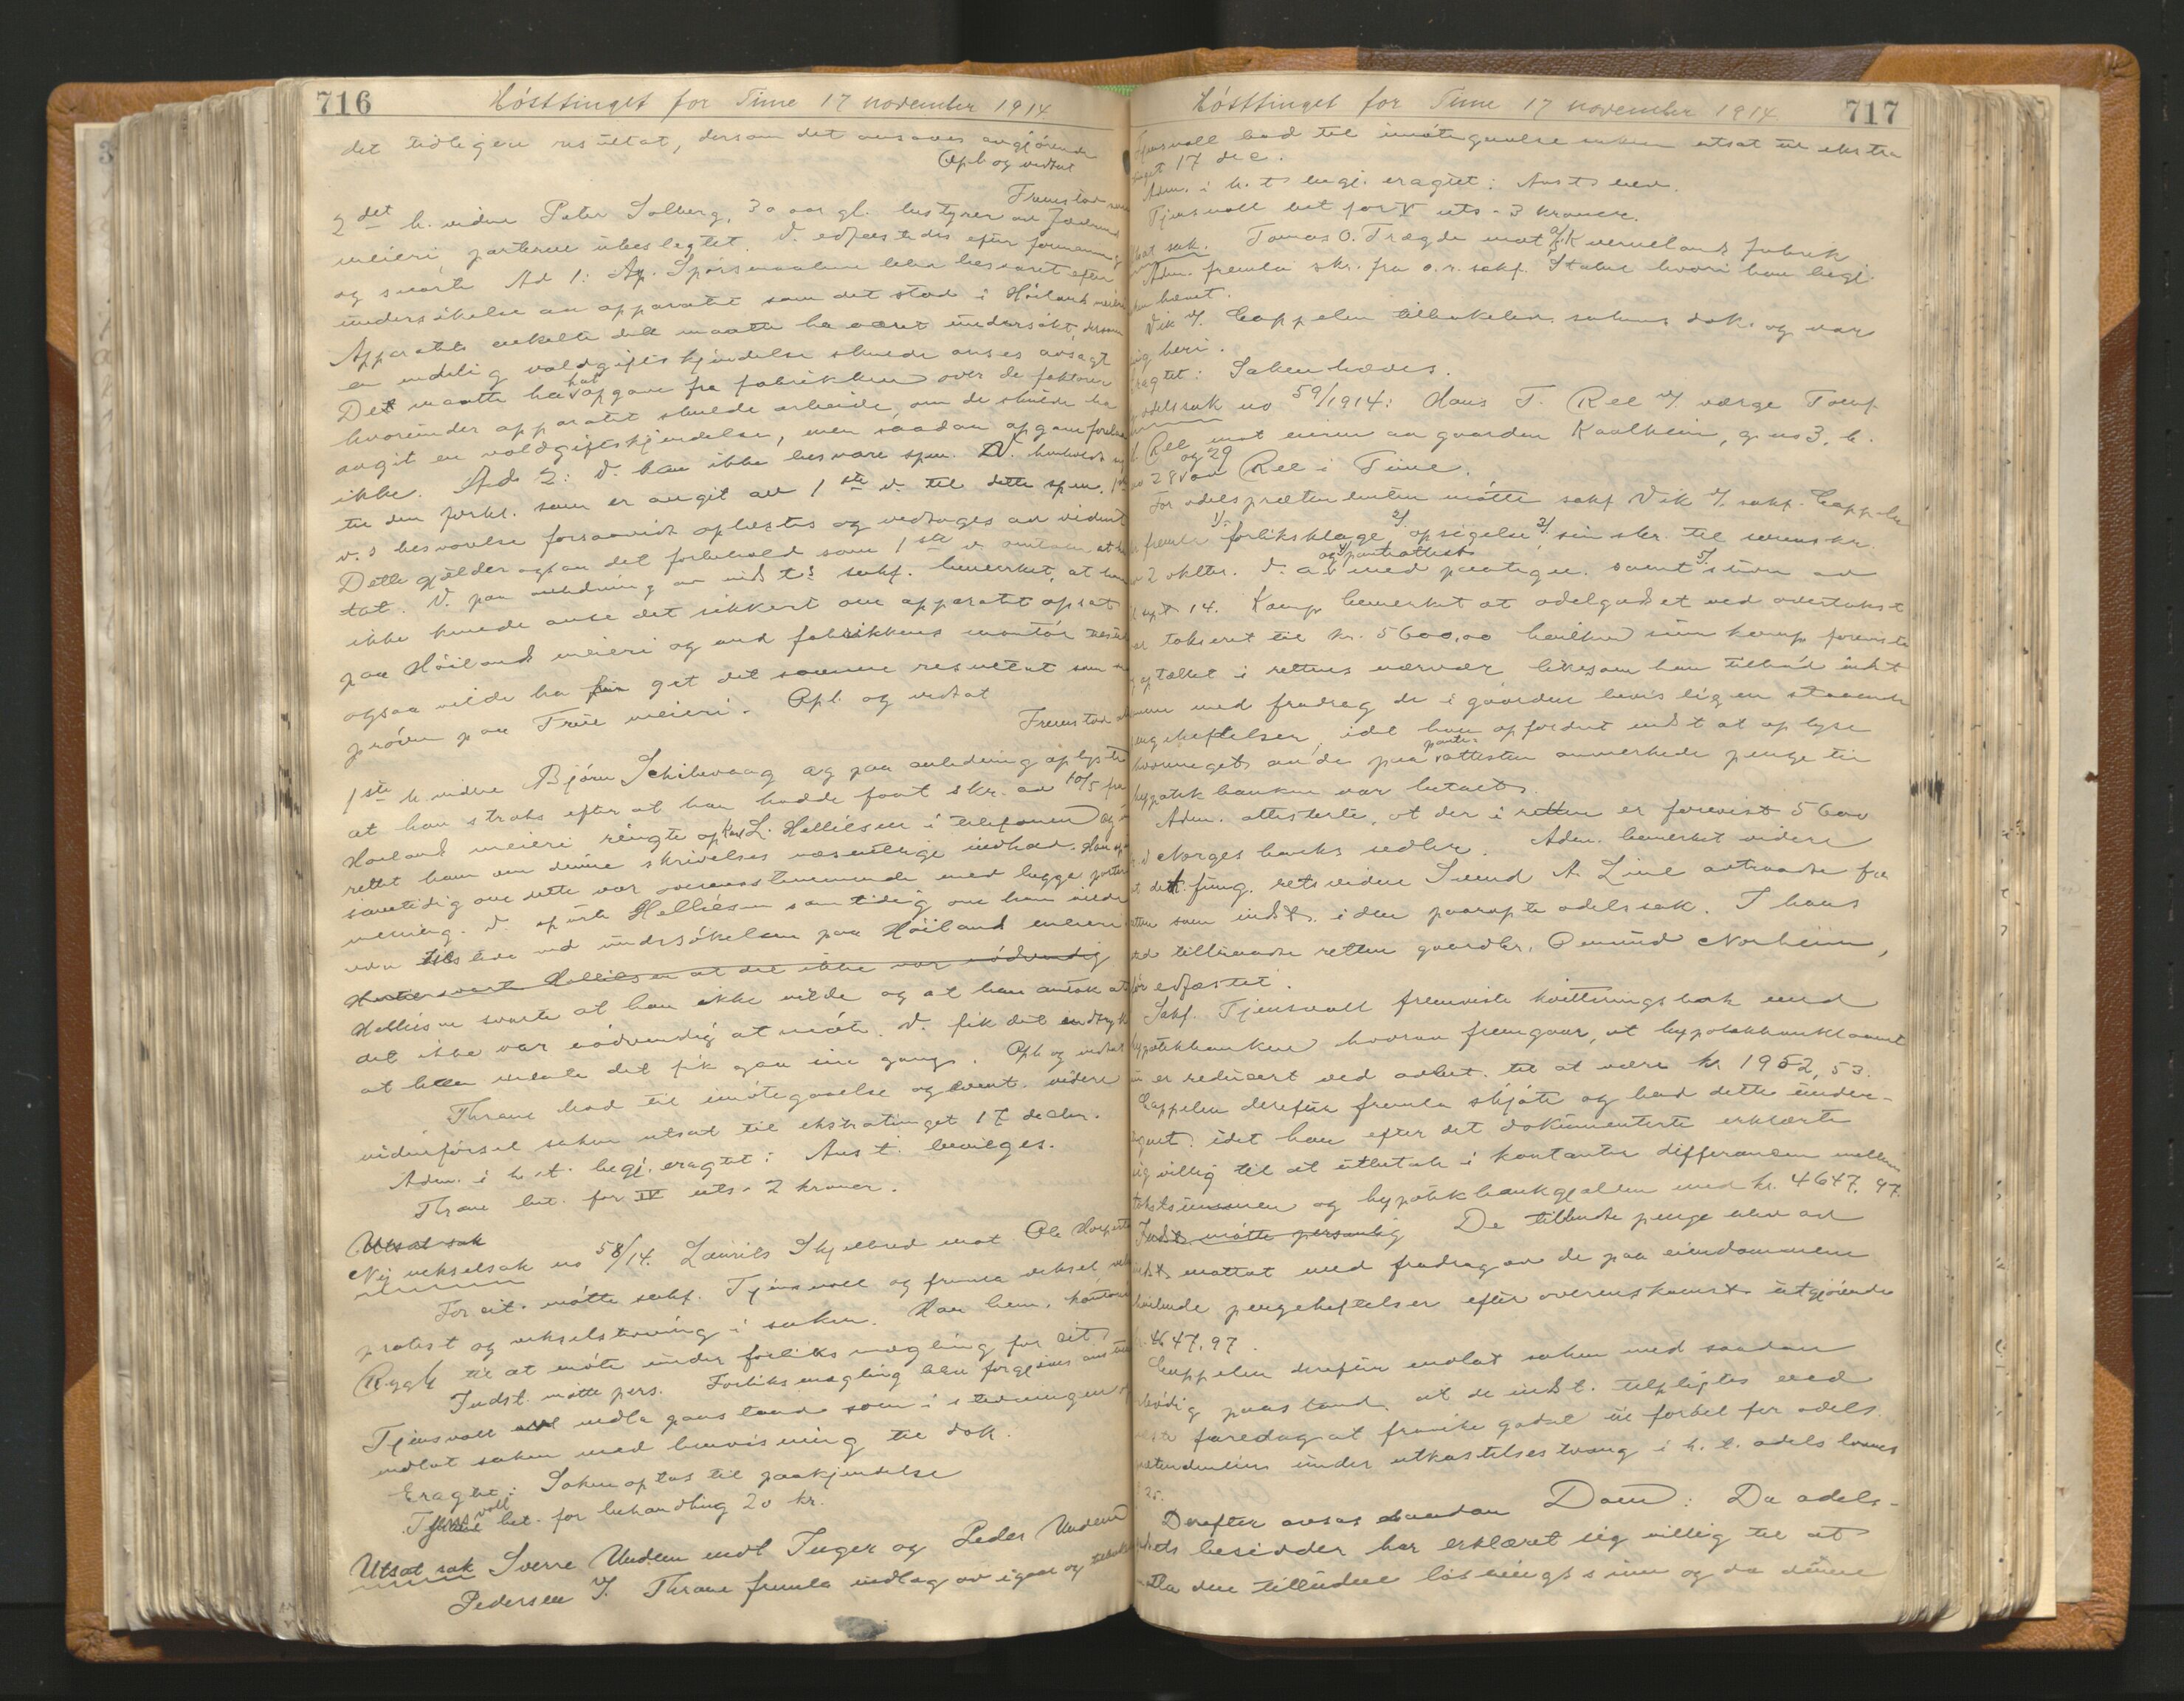 716
Hösttinget for Time 17 november 1914
det tidligere resultat, dersom det ansaaes avgjörende
Opl. og vedtat
Fremstod som
2det h. vidne Peter Solberg, 30 aar gl. bestyrer av Jæderens
meieri parterne ubeslegtet. V. edfæstedes efter formaning
og svarte Ad 1: Spörsmaalene blev besvaret efter
undersökelse av apparatet som det stod i Höiland meieri
Apparatets enkelte dele maatte ha været undersökt, dersom
en endelig voldgiftskjendelse skulde ansees avsagt
Det maatte ha hat opgave fra fabrikken over de faktorer
hvorunder apparatet skulde arbeide, om de skulde ha
avgit en voldgiftskjendelse, men saadan opgave forelaa
ikke. Ad 2: V. kan ikke besvare spm. V. henholdt sig
til den forkl. som er avgit av 1ste v. til dette spm. 1ste
v.s besvarelse forsaavidt oplæstes og vedtages av vidnet
Dette gjælder ogsaa det forbehold som 1ste v.
tat. V. paa anledning av indst.s sakf. bemerket, at han
ikke kunde anse det sikkert om apparatet opsat
paa Höiland meieri og ved fabrikkens montör
ogsaa vilde ha git det samme resultat som ved
pröven paa Time meieri. Opl. og vedtat
Fremstod
1ste h. vidne Björn Schibevaag og paa anledning oplyste
at han straks efter at han hadde faat skr. av 10/5 fra
Höiland meieri ringte op Karl L. Helliesen i telefonen og
rettet ham om denne skrivelses væsentlige indhold. Han
samtidig om dette var overensstemmende med begge parters
mening. V. spurte Helliesen samtidig om han vilde
være tilstede ved undersökelsen paa Höiland meieri
Hertil svarte Helliesen at det ikke var nödvendig
Helliesen svarte at han ikke vilde og at han antok at
det ikke var nödvendig at möte. V. fik det indtryk
at han mente det fik gaa sin gang. Opl. og vedtat
Thrane bad til imötegaaelse og event. videre
vidneförsel saken utsat til ekstratinget 17 decbr.
Adm. i h. t. begj. eragtet: Anst. bevilges.
Thrane bet. for IV uts. 2 kroner.
Utsat sak
Ny vekselsak no 58/14. Laurits Skjelbred mot Ole Horpestad
For cit. mötte sakf. Tjensvoll og fremla veksel,
protest og vekselstevning i saken. Han bem.
Rygh til at möte under forliksmægling for cit.
Indst. mötte pers. Forliksmægling blev forgjæves anstillet
Tjensvoll nedla paastand som i stevningen og
indlot saken med henvisning til dok.
Eragtet: Saken optas til paakjendelse
Tjensvoll bet. for behandling 20 kr.
Utsat sak Sverre Undem mot Inger og Peder Undem
Pedersen v/. Thrane fremla indlæg av igaar og
717
Hösttinget for Time 17 november 1914.
Tjensvoll bad til imötegaaelse saken utsat til ekstra
tinget 17 dec.
Adm. i h. t. begj. eragtet: Anst. bev.
Tjensvoll bet for V uts. 3 kroner.
Utsat sak. Tomas O. Trægde mot a/s Kverneland fabrik
Adm. fremla skr. fra o.r. sakf. Stabel hvori han begj.
saken hævet.
Vik v/. Cappelen tilbakelev. sakens dok. og var
enig heri.
Eragtet: Saken hæves.
Odelssak no 59/1914: Hans T. Ree v/ værge Tomas
Ree mot eieren av gaarden Kaalheim, g. no 3, b.
no 28 og 29 av Ree i Time.
For odelsprætendenten mötte sakf. Vik v/. sakf. Cappelen
og fremla 1/. forliksklage 2/. opsigelse 3/. sin skr. til sorenskr.
av 2 oktbr. d. a. og 4/. panteattest med paategn. samt 5/. stevn. av
14. Komp bemerket at odelsgodset ved overtakst
er taksert til kr. 5600,00 hvilken sum komp. foreviste
og optallet i rettens nærvær likesom han tilböd indst.
summen med fradrag de i gaarden bevislig en staaende
pengeheftelser, idet han opfordret indst. at oplyse
hvormeget av de paa panteattesten anmerkede penge til
hypotekbanken var betalt.
Adm. attesterte, at der i retten er forevist 5600
kr. i Norges banks sedler. Adm. bemerket videre
at det fung. retsvidne Svend A Line attraadte fra
retten som indst. i den paaropte odelssak. I hans
sted tiltraadte retten gaardbr. Omund Norheim,
för edfæstet.
Sakf. Tjensvoll fremviste kvitteringsbok med
hypotekbanken hvorav fremgaar, at hypotekbanklaanet
nu er redusert ved avbet. til at være kr 1952,53.
Cappelen derefter fremla skjöte og bad dette under-
tegnet idet han efter det dokumenterte erklærte
sig villig til at utbetale i kontanter differansen mellem
takstsummen og hypotekbankgjælden med kr. 4647,97
Indst mötte personlig De tilbudte penge blev av
indst. mottat med fradrag av de paa eiendommen
hvilende pengeheftelser efter overenskomst utgjörende
kr. 4647,97.
Cappelen derefter indlot saken med saadan
lydig paastand at de indst. tilpligtes ved
næste faredag at fravike godset til fordel for odels-
pretendenten under utkastelsestvang i h. t. odelslovens
§ 25.
Derefter avsas saadan Dom: Da odels-
godsets besidder har erklæret sig villig til at
motta den tilbudne lösningssum og da denne